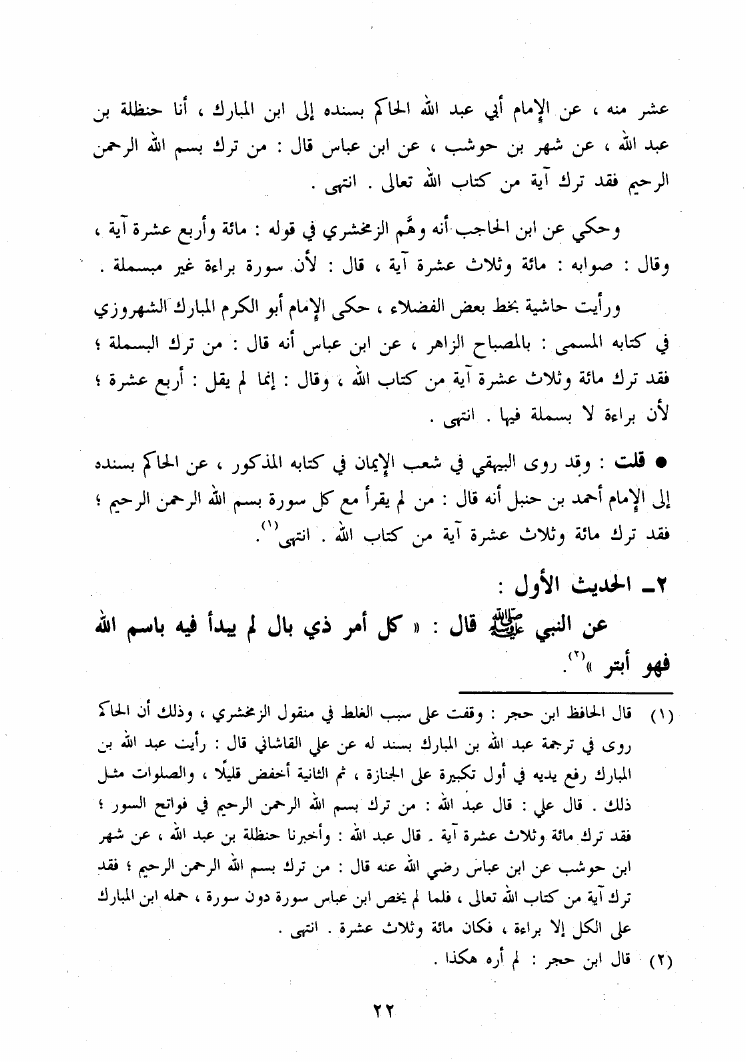 عشر منه ، عن الإمام أبي عبد الله الحاكم بسنده إلى ابن المبارك ، أنا حنظلة بن
عبد الله ، عن شهر بن حوشب ، عن ابن عباس قال : من ترك بسم الله الرحمن
الرحيم فقد ترك آية من كتاب الله تعالى . انتهى .
وحكي عن ابن الحاجب أنه وهَّم الزمخشري في قوله : مائة وأربع عشرة آية ،
وقال : صوابه : مائة وثلاث عشرة آية ، قال : لأن سورة براءة غير مبسملة .
ورأيت حاشية بخط بعض الفضلاء ، حكى الإمام أبو الكرم المبارك الشهروزي
في كتابه المسمى : بالمصباح الزاهر ، عن ابن عباس أنه قال : من ترك البسملة ؛
فقد ترك مائة وثلاث عشرة آية من كتاب الله ، وقال : إنما لم يقل : أربع عشرة ؛
لأن براءة لا بسملة فيها . انتهى .
● قلت : وقد روى البيهقي في شعب الإيمان في كتابه المذكور ، عن الحاكم بسنده
إلى الإمام أحمد بن حنبل أنه قال : من لم يقرأ مع كل سورة بسم الله الرحمن الرحيم ؛
فقد ترك مائة وثلاث عشرة آية من كتاب الله . انتهى(١).
٢ـ الحديث الأول :
عن النبي ﷺ قال : « كل أمر ذي بال لم يبدأ فيه باسم الله
فهو أبتر »(٢).
(١) قال الحافظ ابن حجر : وقفت على سبب الغلط في منقول الزمخشري ، وذلك أن الحاكم
روى في ترجمة عبد الله بن المبارك بسند له عن علي القاشاني قال : رأيت عبد الله بن
المبارك رفع يديه في أول تكبيرة على الجنازة ، ثم الثانية أخفض قليلًا ، والصلوات مثل
ذلك . قال علي : قال عبد الله : من ترك بسم الله الرحمن الرحيم في فواتح السور ؛
فقد ترك مائة وثلاث عشرة آية . قال عبد الله : وأخبرنا حنظلة بن عبد الله ، عن شهر
ابن حوشب عن ابن عباس رضي الله عنه قال : من ترك بسم الله الرحمن الرحيم ؛ فقد
ترك آية من كتاب الله تعالى ، فلما لم يخص ابن عباس سورة دون سورة ، حمله ابن المبارك
على الكل إلا براءة ، فكان مائة وثلاث عشرة . انتهى .
(٢) قال ابن حجر : لم أره هكذا .
٢٢